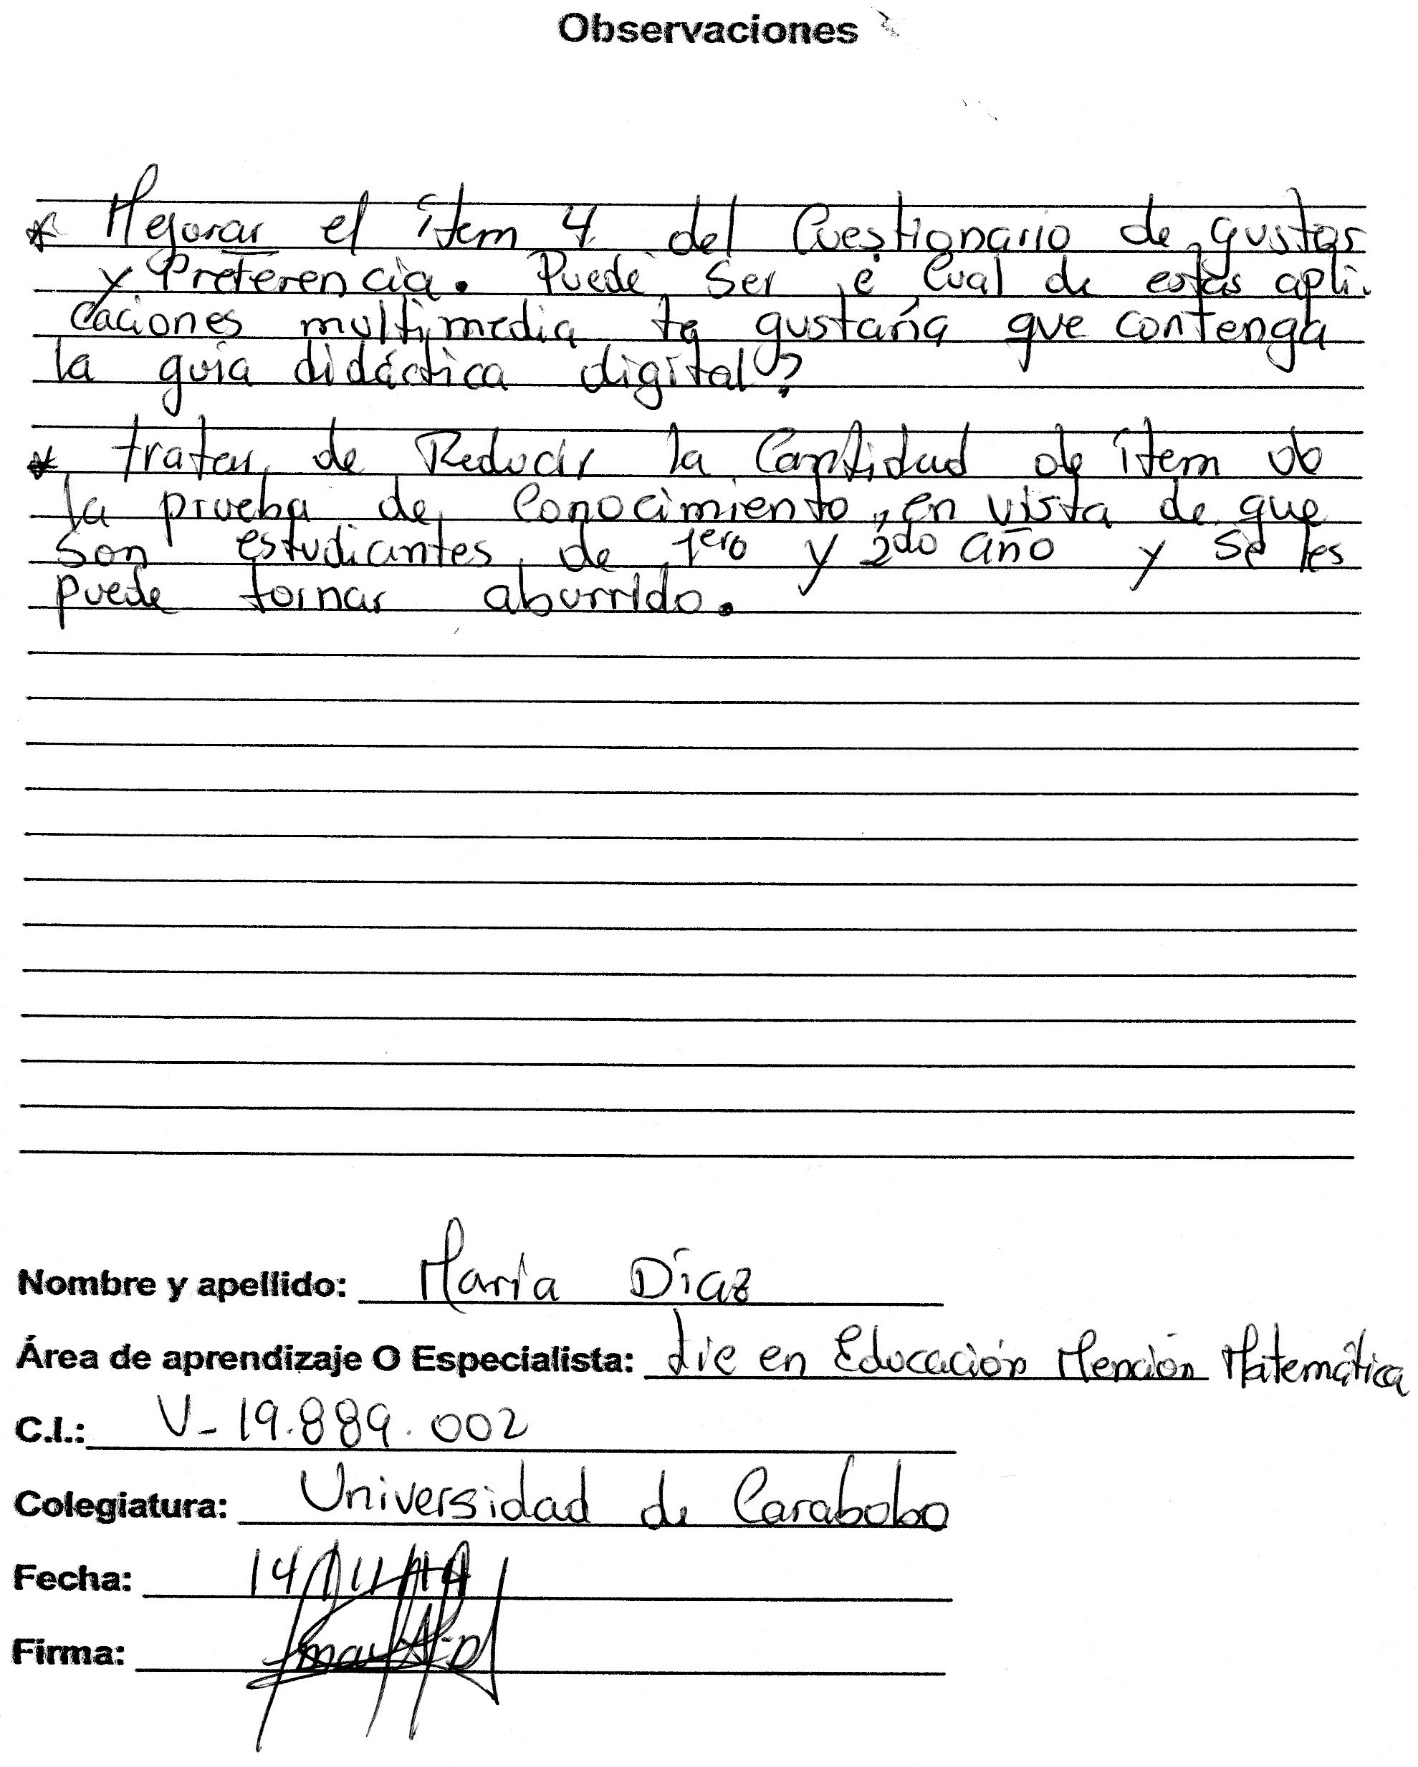 Observaciones
* Mejorar el ítem 4 del Cuestionario de gustos
y Preferencia. Puede ser ¿ Cual de estas apli-
caciones multimedia te gustaría que contenga
la guía didáctica digital?
* tratar de Reducir la Cantidad de ítem de
la prueba de Conocimiento, en vista de que
son estudiantes de 1ero y 2do año y se les
puede tornar aburrido.
Nombre y apellido: María Díaz
Área de aprendizaje O Especialista: Lic en Educación Mención Matemática
C.I.: V-19.889.002
Colegiatura: Universidad de Carabobo
Fecha:
Firma: